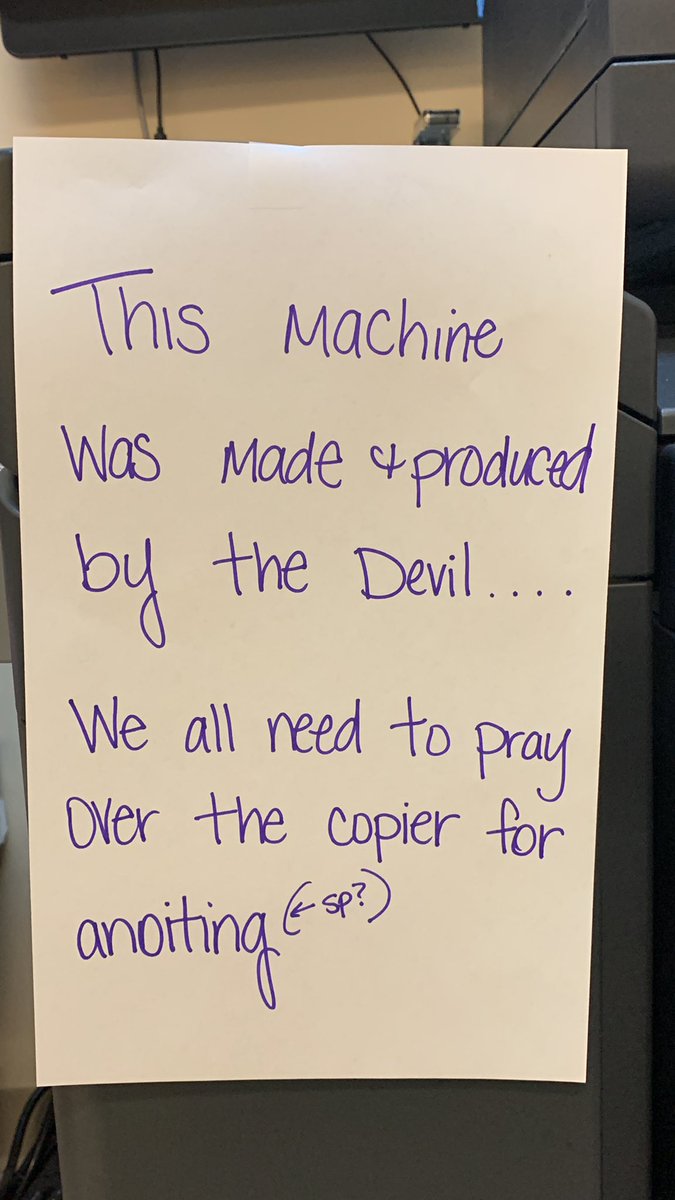 This Machine
Was Made & produced
by the Devil....
We all need to pray
over the copier for
anoiting (←sp?)